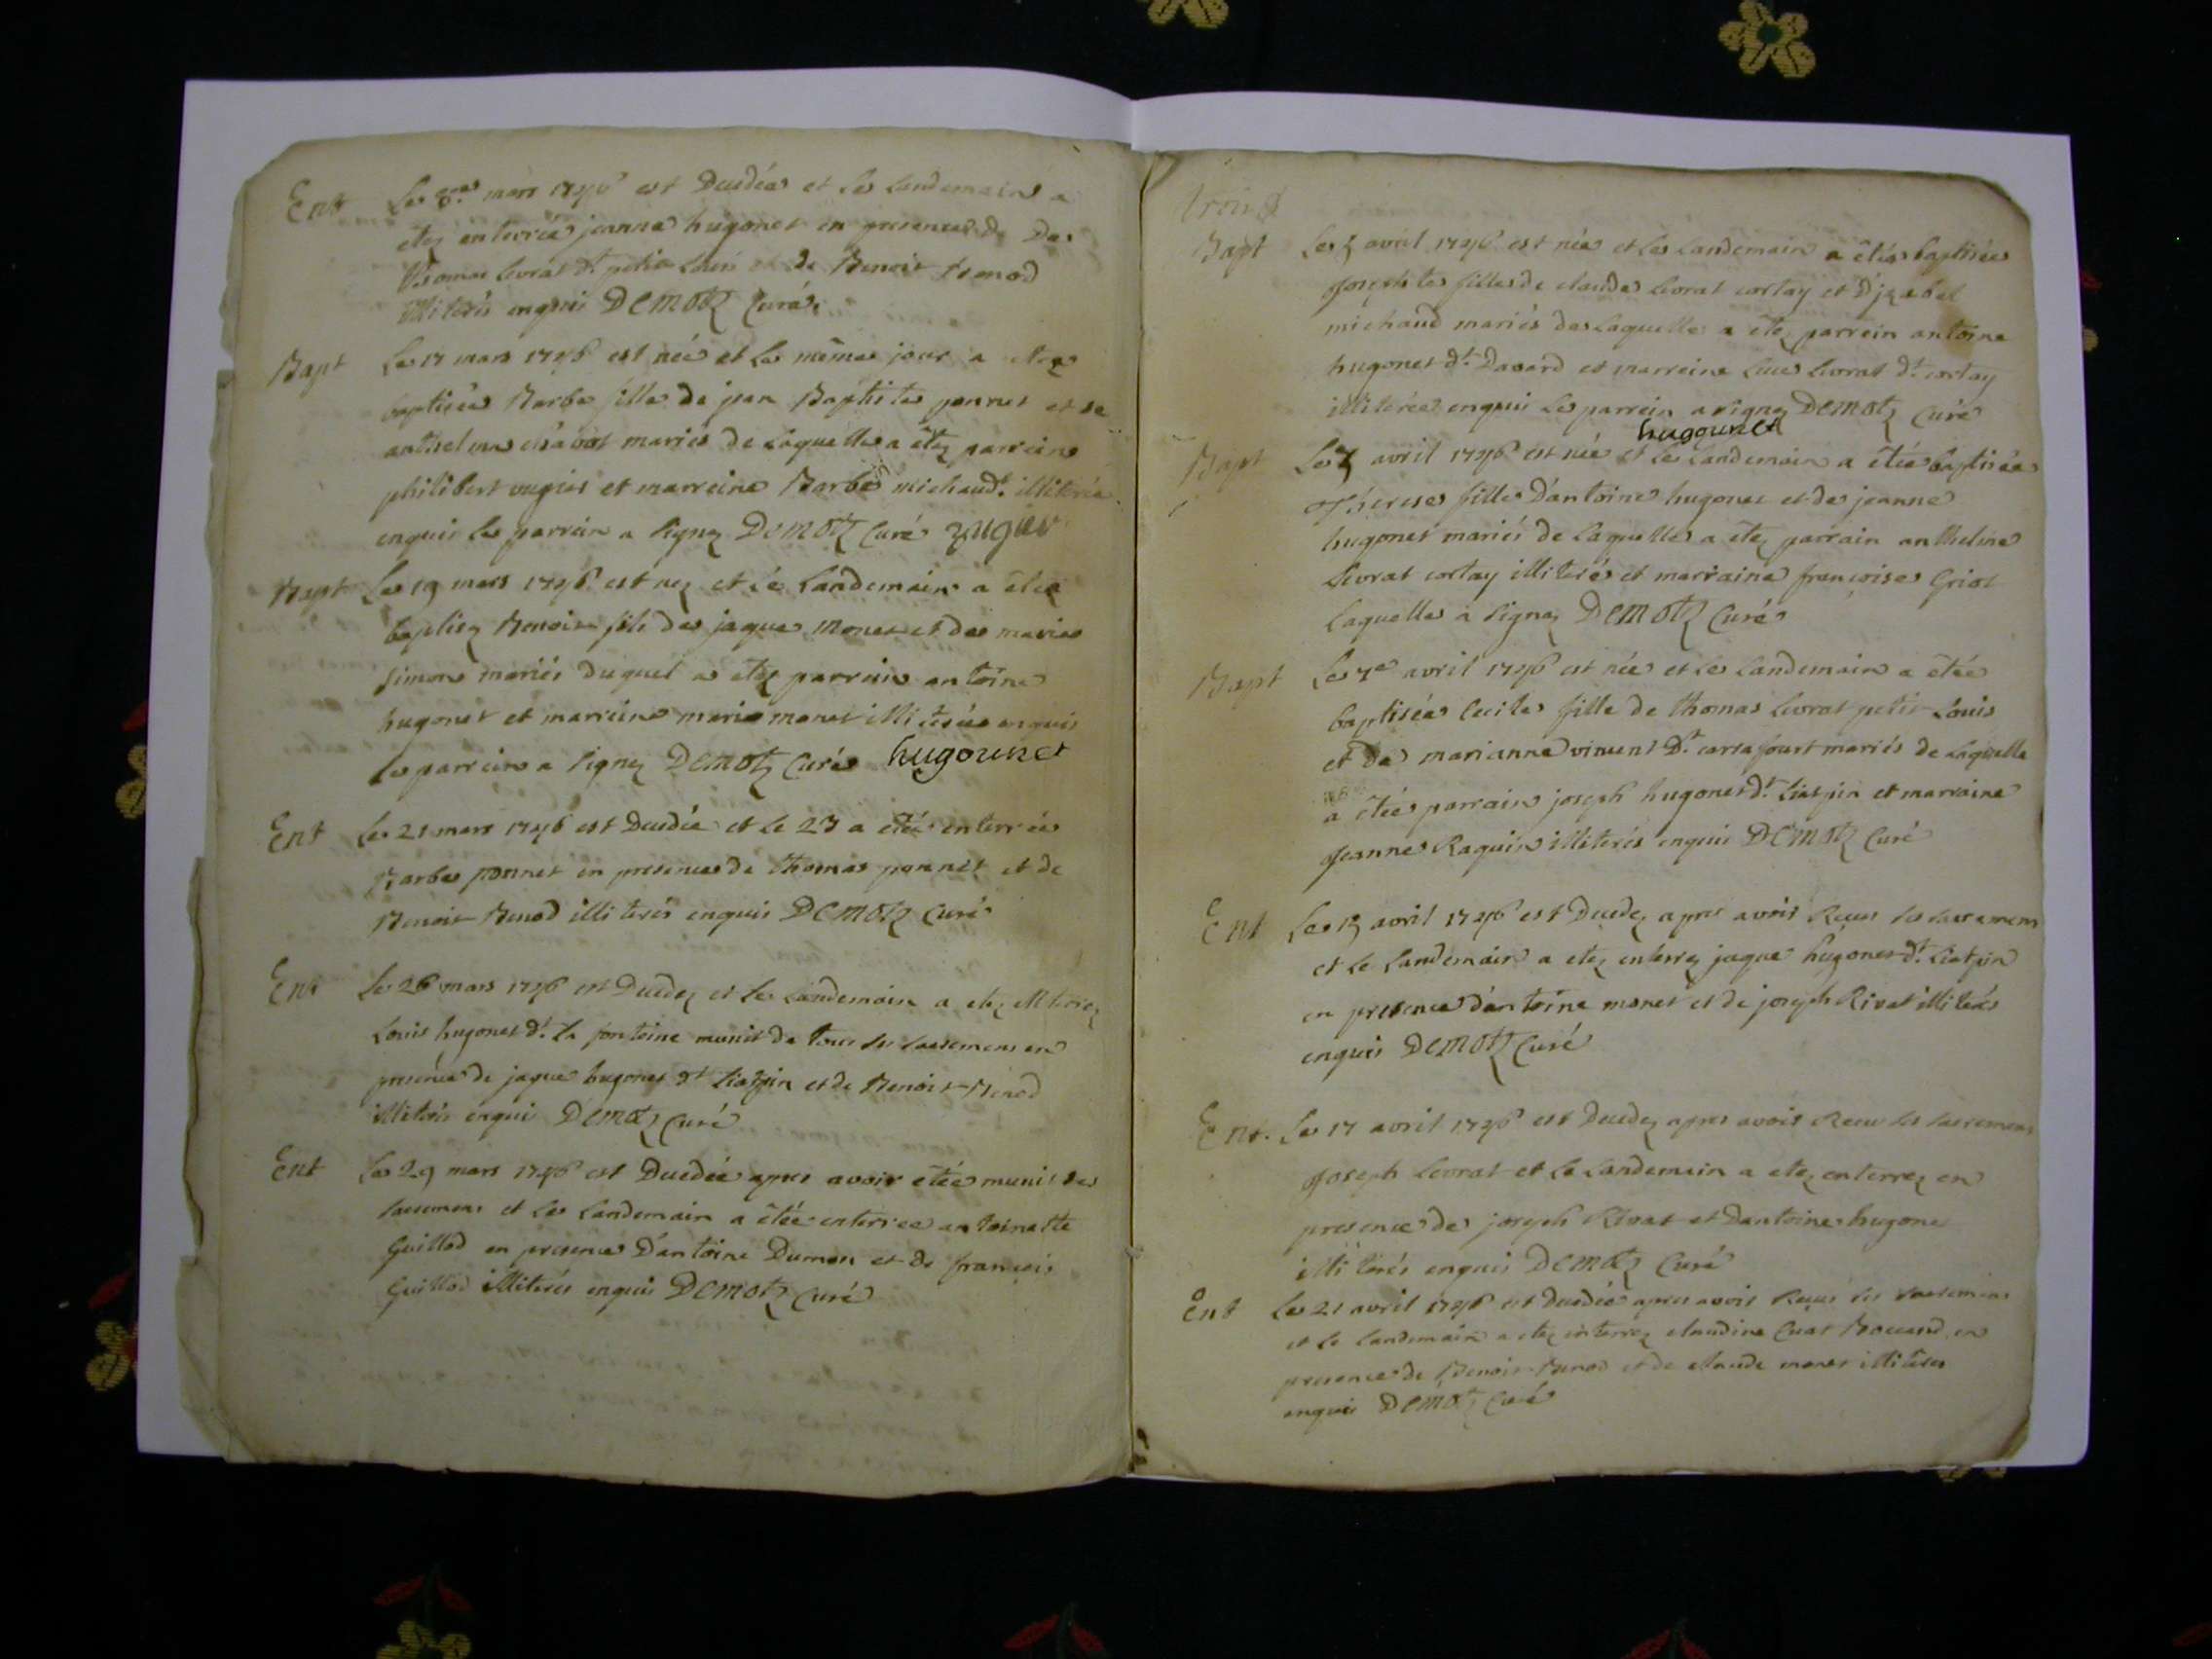 Ent Le mars 1746 est Decedée et le Landemain a
etez enterrée jeanne hugonet en presence de
Livrat dt petit Louis et de Benoit Benod
illiterés enquis DEMOTZ Curé
Bapt Le 17 mars 1746 est née et le même jour a etez
baptisée Barbe fille de jean Baptiste ponnet et de
anthelma mariés de Laquelle a êtez parrein
philibert vugier et marreine Barbe michaud illiterée
enquis le parrein a signez DEMOTZ Curé vugier
Bapt Le 19 mars 1746 est nez et Le Landemain a etez
baptisez Benoit fils de jaque Monet et de marie
simon mariés duquel a etez parrein antoine
hugonet et marreine marie monet illiterée enquis
le parrein a signez DEMOTZ Curé hugounet
Ent Le 21 mars 1746 est Decedée et Le 23 a êtée enterrée
Barbe ponnet en presence de thomas ponnet et de
Benoit Benod illiterés enquis DEMOTZ Curé
Ent Le 26 mars 1746 est Decedez et le Landemain a etez enterrez
Louis hugonet dt La fontaine munit de tous les sacremens en
presence de jaque hugonet dt Liatpin et de Benoit Benod
illiterés enquis DEMOTZ Curé
Ent Le 29 mars 1746 est Decedée apres avoir êtée munit des
sacremens et Le Landemain a êtée enterree antoinette
Guillod en presence D'antoine Dumon et de françois
Guillod illiterés enquis DEMOTZ Curé
trois
Bapt Le 5 avril 1746 est née et Le Landemain a êtée baptisée
Josephte fille de claude Livrat cortay et D'izabel
michaud mariés de Laquelle a êtez parrein antoine
hugonet dt Davard et marreine Livrat dt cortay
illiterée enquis Le parrein a signez DEMOTZ Curé
hugounet
Bapt Le avril 1746 est née et Le Landemain a êtée baptisée
Therese fille D'antoine hugonet et de jeanne
hugonet mariés de Laquelle a êtez parrain anthelme
Livrat cortay illiteré et marraine françoise Griot
Laquelle a signez DEMOTZ Curé
Bapt Le 7e avril 1746 est née et Le Landemain a êtée
baptisée Cecile fille de thomas Livrat petit Louis
et de marianne vincent dt mariés de Laquelle
a êtée parrain joseph hugonet dt Liatpin et marraine
Jeanne Raquin illiterés enquis DEMOTZ Curé
Ent Le 13 avril 1746 est Decedez apres avoir Reçus les sacremens
et Le Landemain a etez enterrez jaque hugonet dt Liatpin
en presence d'antoine monet et de joseph Rivat illiterés
enquis DEMOTZ Curé
Ent. Le 17 avril 1746 est Decedez apres avoir Recu les sacremens
Joseph Livrat et Le Landemain a etez enterrez en
presence de joseph Rivat et Dantoine hugonet
illiterés enquis DEMOTZ Curé
Ent Le 21 avril 1746 est Decedée apres avoir Reçus les sacremens
et le Landemain a etez enterrez claudine en
presence de Benoit Benod et de claude monet illiterés
enquis DEMOTZ Curé